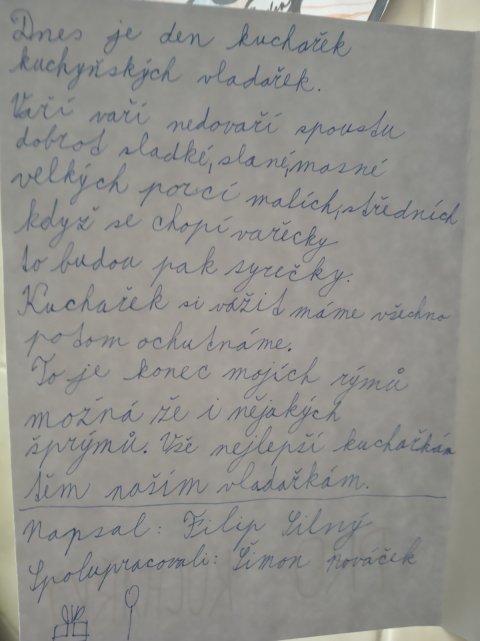 Dnes je den kuchařek
kuchyňských vladařek.
Vaří vaří nedovaří spoustu
dobrot sladké, slané, masné
velkých porcí malích, středních
když se chopí vařečky
to budou pak syrečky.
Kuchařek si vážit máme všechno
potom ochutnáme.
To je konec mojích rýmů
možná že i nějakých
šprýmů. Vše nejlepší kuchařkám
těm naším vladařkám.
Napsal: Filip Silný
Spolupracovali: Šimon Nováček